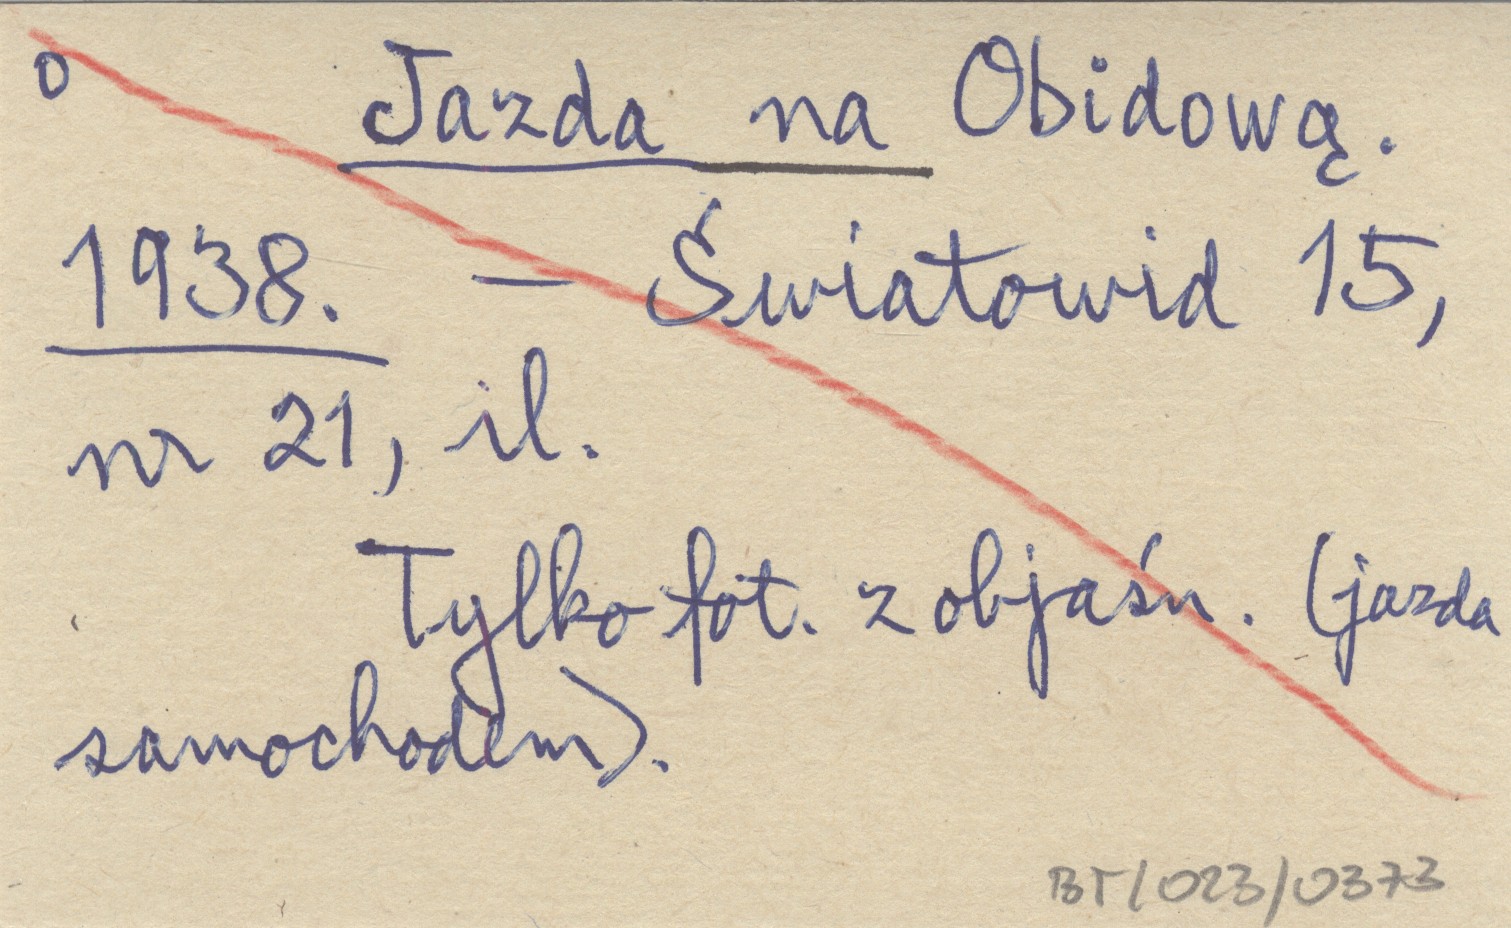 o Jazda na Obidową.
1938. — Światowid 15,
nr 21, il.
Tylko fot. z objaśn. (jazda
samochodem).
BT/023/0373